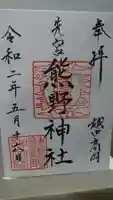 奉拝
先宮
熊野神社
令和二年五月十六日